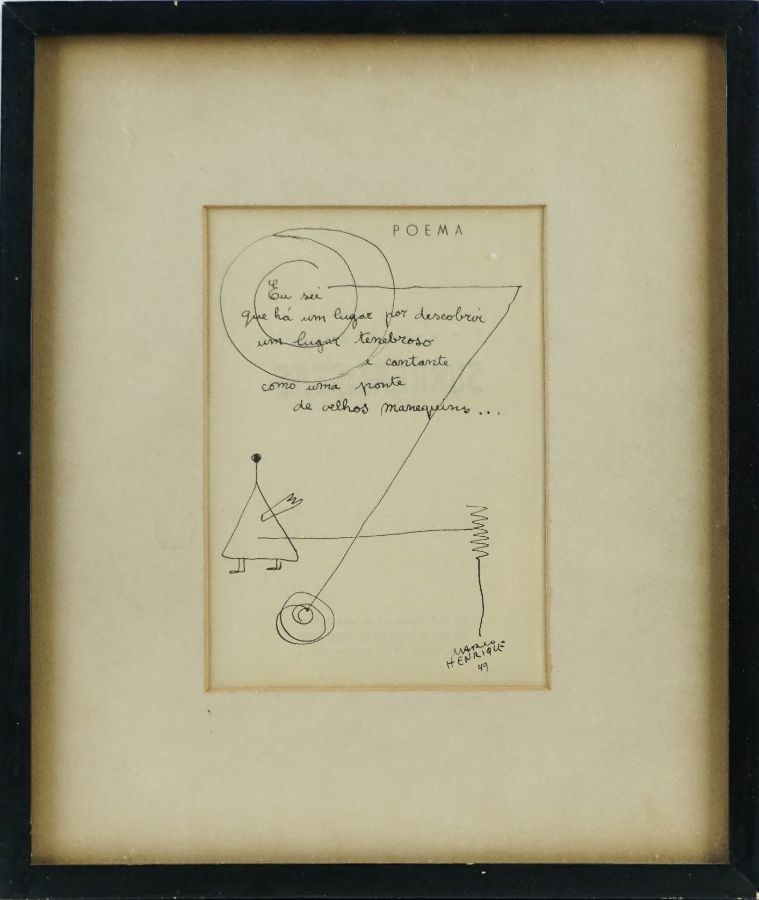 POEMA
Eu sei
que há um lugar por descobrir
um lugar tenebroso
e cantante
como uma ponte
de velhos manequins...
MARIO
HENRIQUE
49